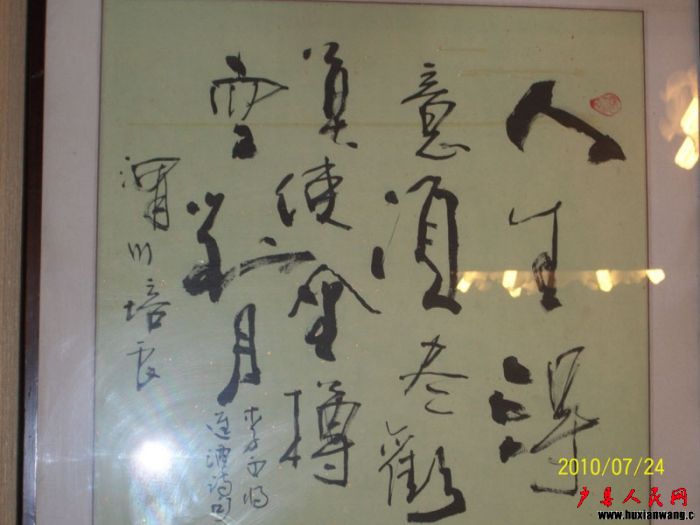 人生得
意須尽歡
莫使金樽
空對月
李白将
進酒詩句
渭川培良
2010/07/24
户县人民网
www.huxianwang.c